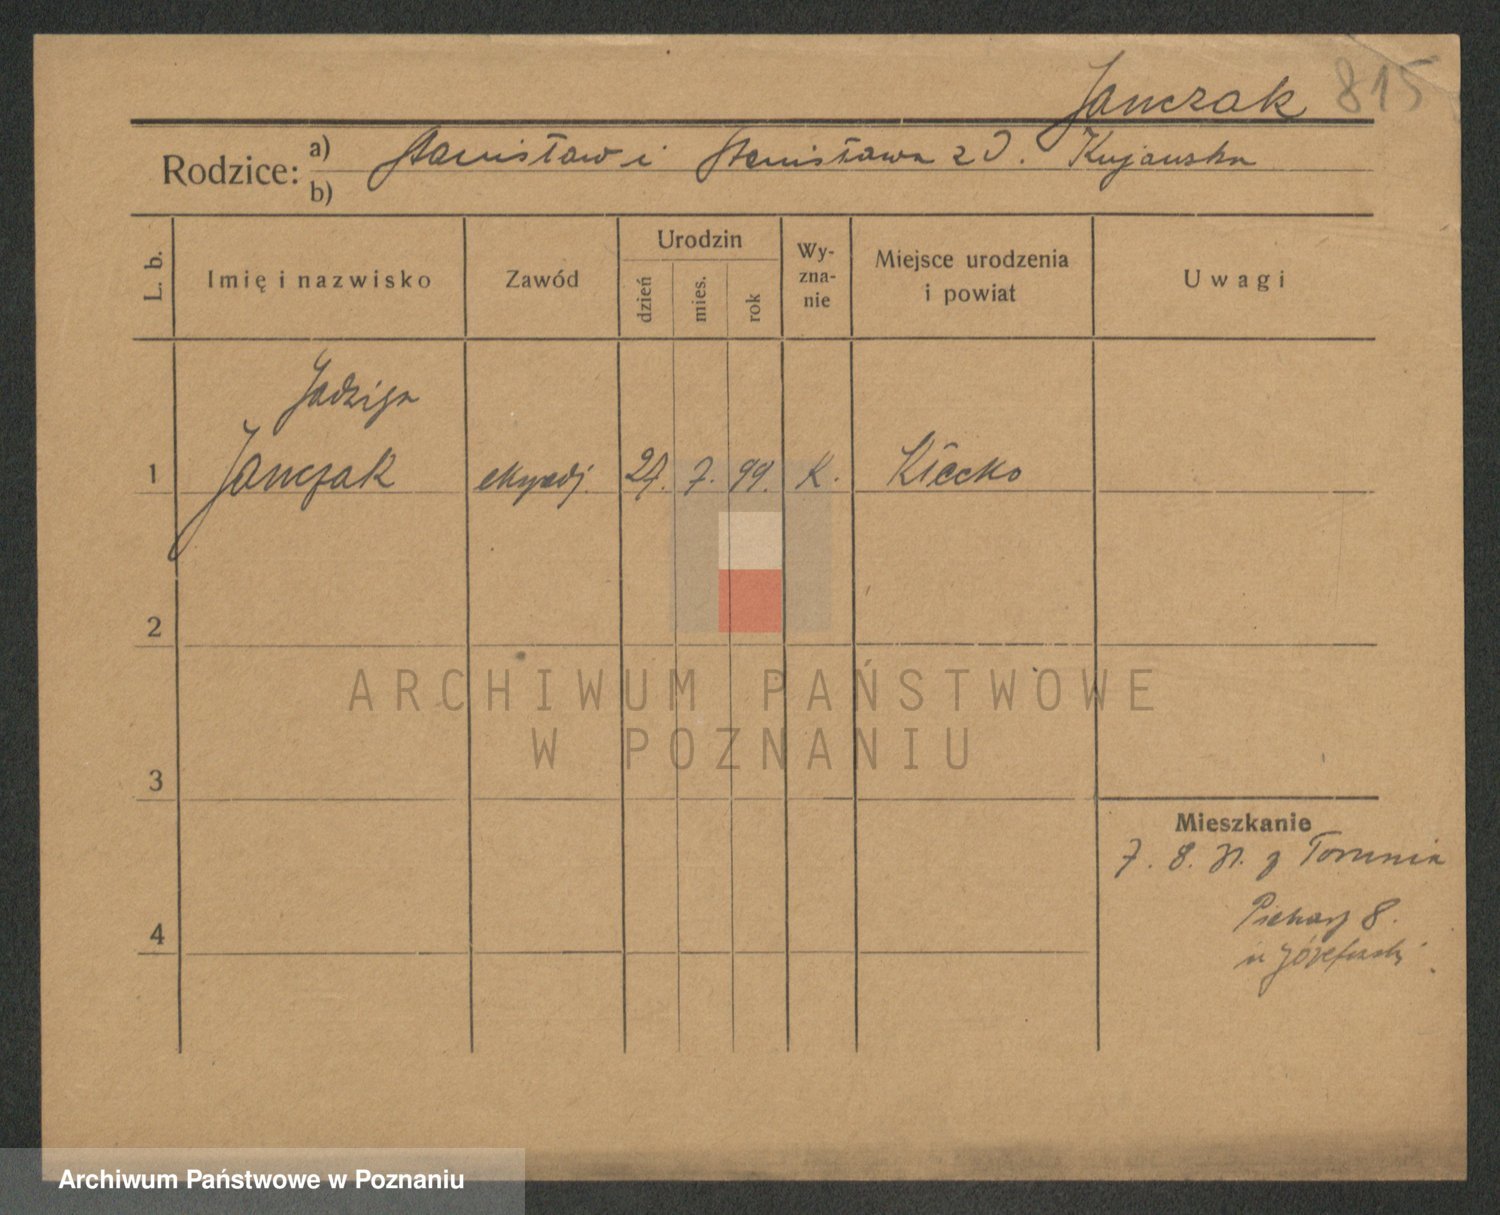 Janczak 815
Rodzice: a) Stanisław i Stanisława z D. Kujawska
b)
L. b.
Imię i nazwisko
Zawód
Urodzin
dzień
mies.
rok
Wy-
zna-
nie
Miejsce urodzenia
i powiat
Uwagi
Jadziga
1 Janczak ekspedj. 24. 7. 99. K. Kłecko
2
3
4
Mieszkanie
7. 8. z Torunia
Piekary 8.
u
ARCHIWUM PAŃSTWOWE
W POZNANIU
Archiwum Państwowe w Poznaniu